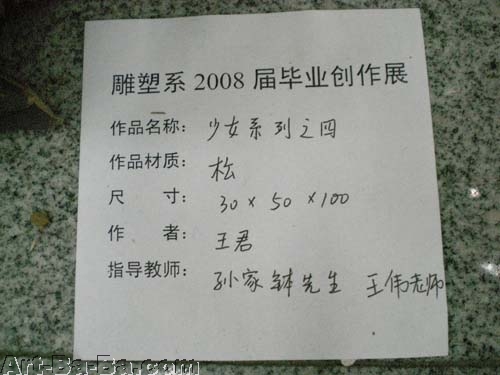 雕塑系 2008 届毕业创作展
作品名称: 少女系列之四
作品材质: 松
尺 寸: 30 × 50 × 100
作 者: 王君
指导教师: 孙家钵先生 王伟老师
Art-Ba-Ba.com